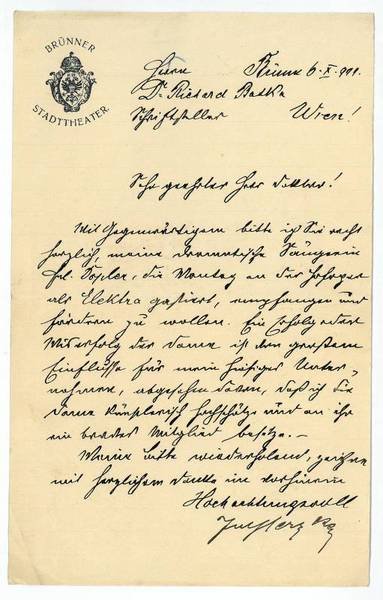 BRÜNNER
STADTTHEATER
Herrn Brünn 6.X.911.
Dr. Richard Batka
Schriftsteller Wien!
Sehr geehrter Herr Doktor!
Mit Gegenwärtigem bitte ich Sie recht
herzlich, meine dramatische Sängerin
Frl. die Montag an der Hofoper
als Elektra gastiert, empfangen und
fördern zu wollen. Ein Erfolg oder
Mißerfolg der Dame ist von großem
Einflusse für mein hiesiges Unter-
nehmen, abgesehen davon, daß ich die
Dame künstlerisch hochschätze und an ihr
ein braves Mitglied besitze.–
Meine Bitte wiederholend, zeichne
mit herzlichem Danke im vorhinein
Hochachtungsvoll